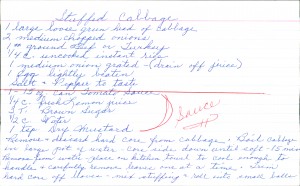 Stuffed Cabbage
1 large loose green head of cabbage
2 medium chopped onions
1# ground beef or Turkey
1/4 c. uncooked instant rice
1 medium onion grated (drain off juice)
1 Egg lightly beaten
Salt + Pepper to taste
1 - 15 oz can Tomato Sauce
1/4 c. Lemon juice
1/4 c. Brown Sugar
1/2 c. Water
1 tsp Dry Mustard
Sauce
Remove + discard hard core from cabbage. Boil cabbage
in large pot of water core side down until soft - 15 min
Remove from water - place on kitchen towel to cool enough to
handle + carefully remove leaves one at a time. Trim
hard core off leaves. Add stuffing + roll into small bells